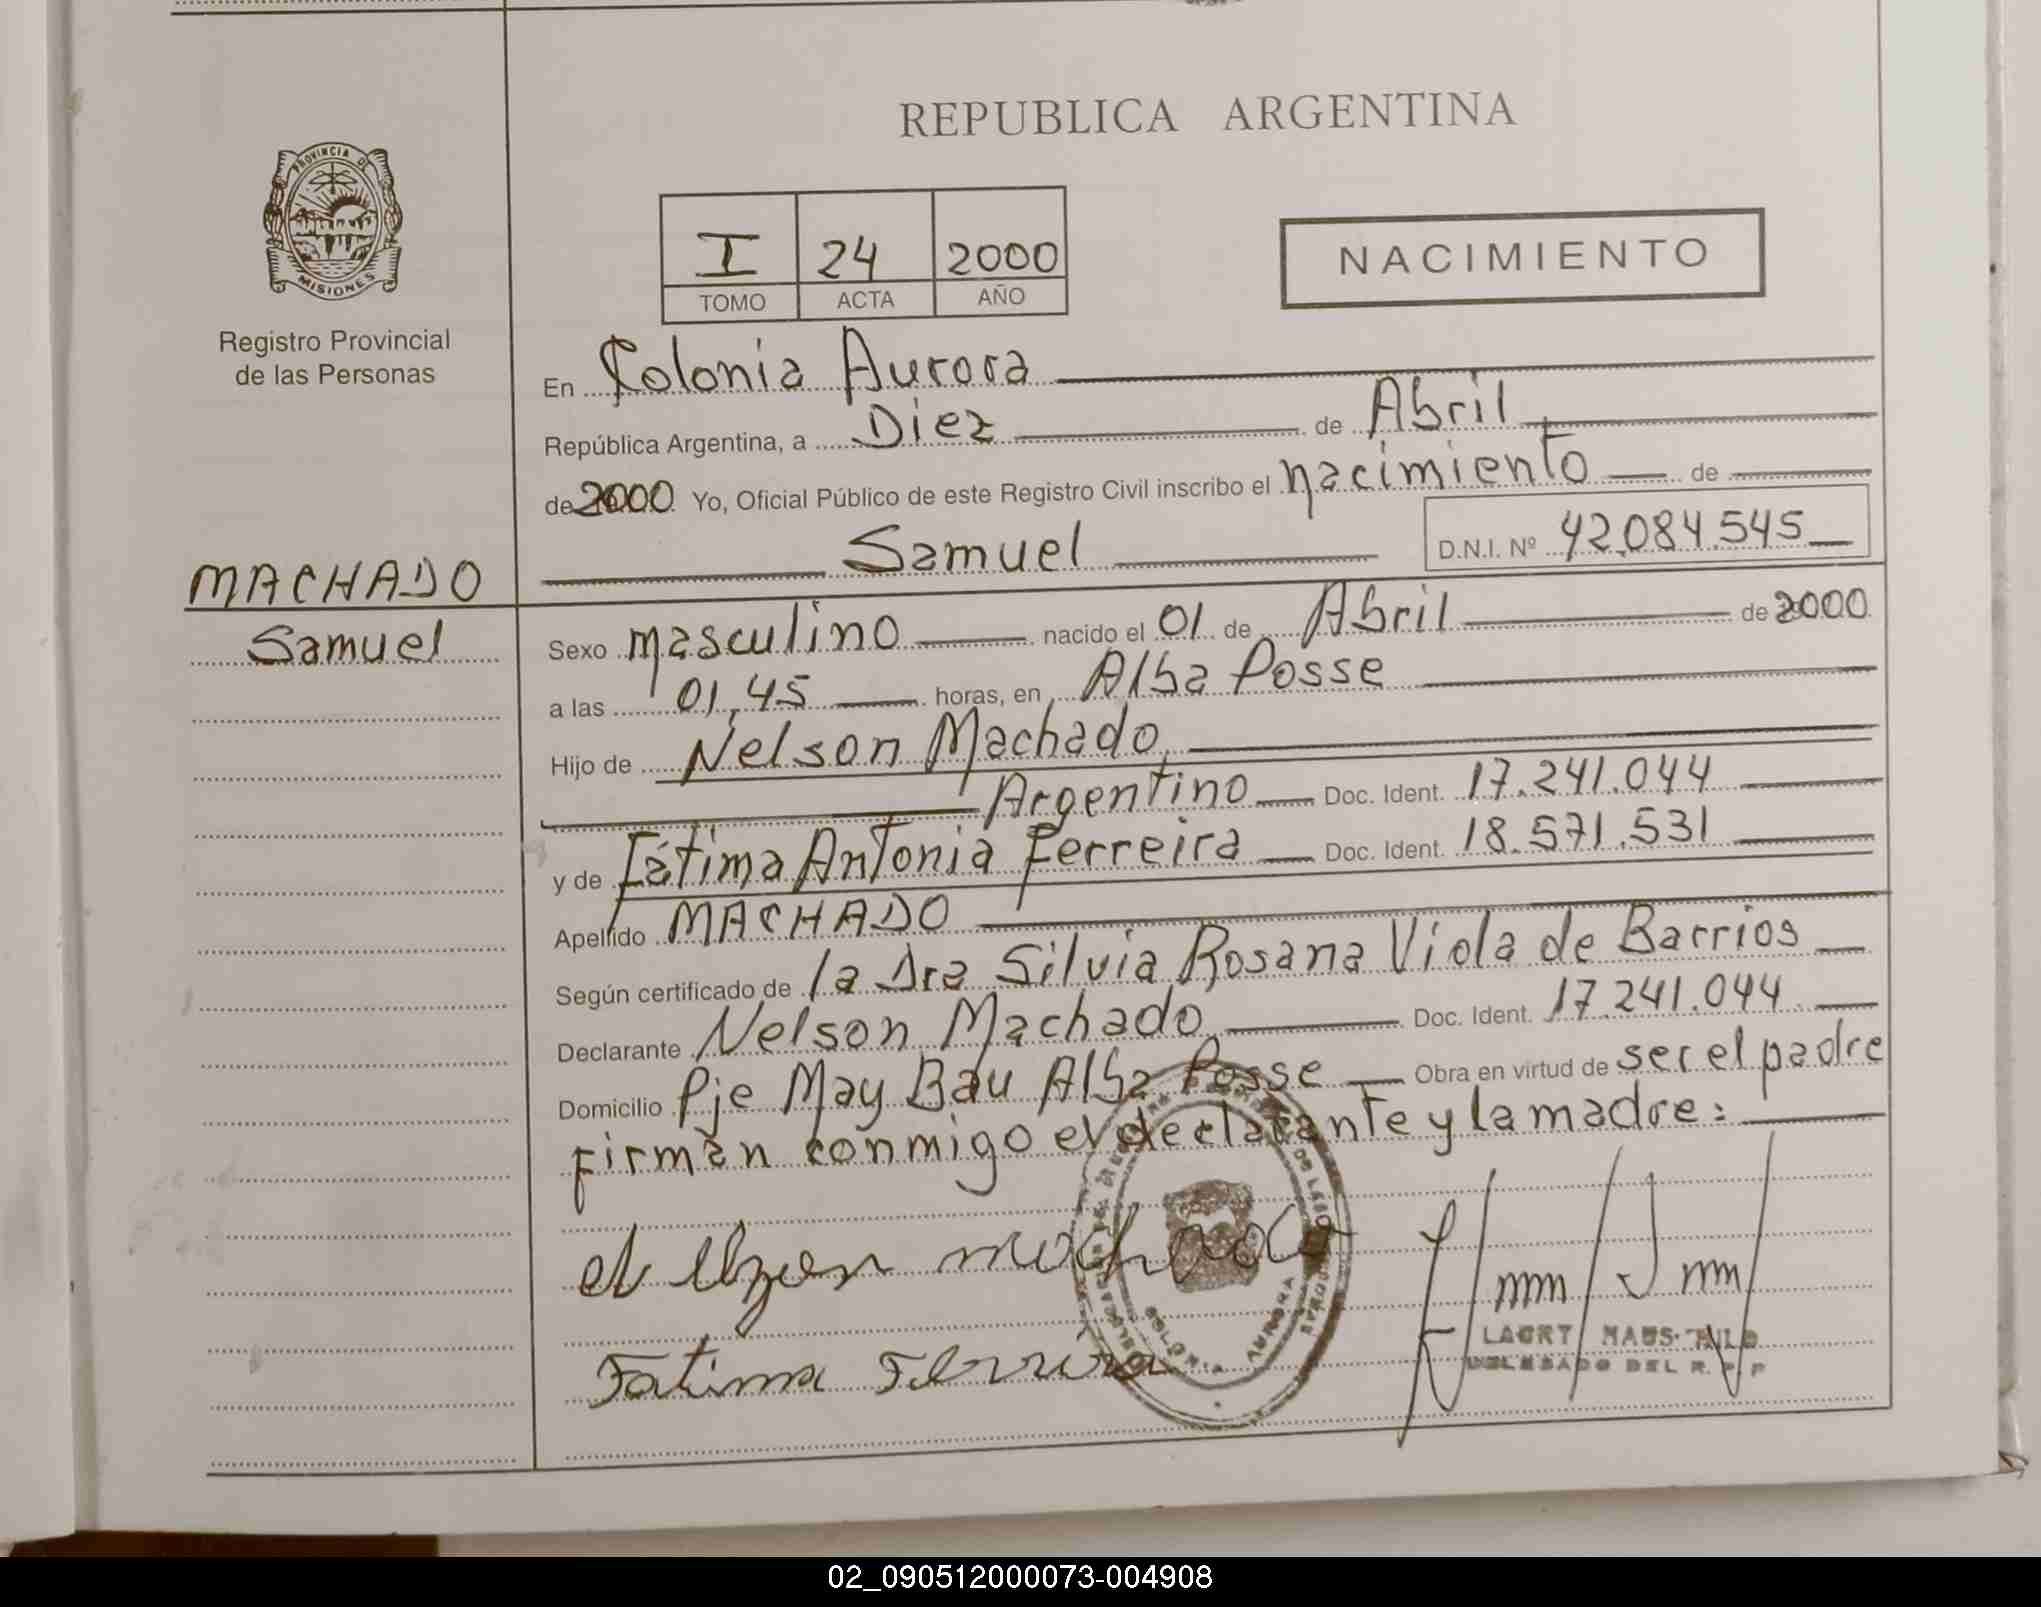 REPUBLICA ARGENTINA
PROVINCIA DE
MISIONES
Registro Provincial
de las Personas
I 24 2000
TOMO ACTA AÑO
NACIMIENTO
En Colonia Aurora
República Argentina, a Diez de Abril
de 2000 Yo, Oficial Público de este Registro Civil inscribo el nacimiento de
Samuel D.N.I. Nº 42.084.545
MACHADO
Samuel
Sexo masculino nacido el 01 de Abril de 2000
a las 01,45 horas, en Alba Posse
Hijo de Nelson Machado,
Argentino Doc. Ident. 17.241.044
y de Fátima Antonia Ferreira Doc. Ident. 18.571.531
Apellido MACHADO
Según certificado de la Dra Silvia Rosana Viola de Barrios
Declarante Nelson Machado Doc. Ident. 17.241.044
Domicilio Pje May Bau Alba Posse Obra en virtud de ser el padre
Firman conmigo el declarante y la madre:
machado
Fatima Ferreira
COLONIA AURORA
DELEGADO DEL R.P.P
02_090512000073-004908